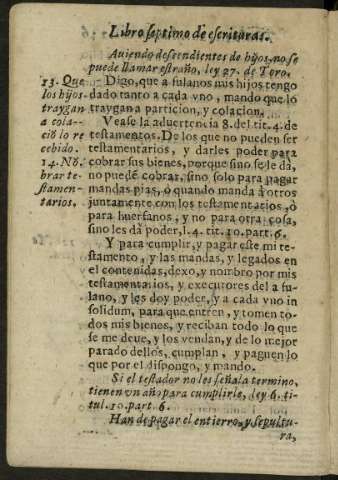 Libro septimo de escrituras.
Auiendo descendientes de hijos, no se
puede llamar estraño, ley 27. de Toro.
13. Que
los hijos
traygan
a cola-
ciõ lo re
cebido.
14. Nõ-
brar te-
stamen-
tarios.
Digo, que a fulanos mis hijos tengo
dado tanto a cada vno, mando que lo
traygan a particion, y colacion.
Vease la aduertencia 8. del tit. 4. de
testamentos. De los que no pueden ser
testamentarios, y darles poder para
cobrar sus bienes, porque sino se le dà,
no puede cobrar, sino solo para pagar
mandas pias, ò quando manda à otros
juntamente con los testamentarios, ò
para huerfanos, y no para otra cosa,
sino les dà poder, l. 4. tit. 10. part. 6.
Y para cumplir, y pagar este mi te-
stamento, y las mandas, y legados en
el contenidas, dexo, y nombro por mis
testamentarios, y executores del a fu-
lano, y les doy poder, y a cada vno in
solidum, para que entren, y tomen to-
dos mis bienes, y reciban todo lo que
se me deue, y los vendan, y de lo mejor
parado dellos, cumplan, y paguen lo
que por el dispongo, y mando.
Si el testador no les señala termino,
tienen vn año para cumplirle, ley 6. ti-
tul. 10. part. 6.
Han de pagar el entierro, y sepultu-
ra,